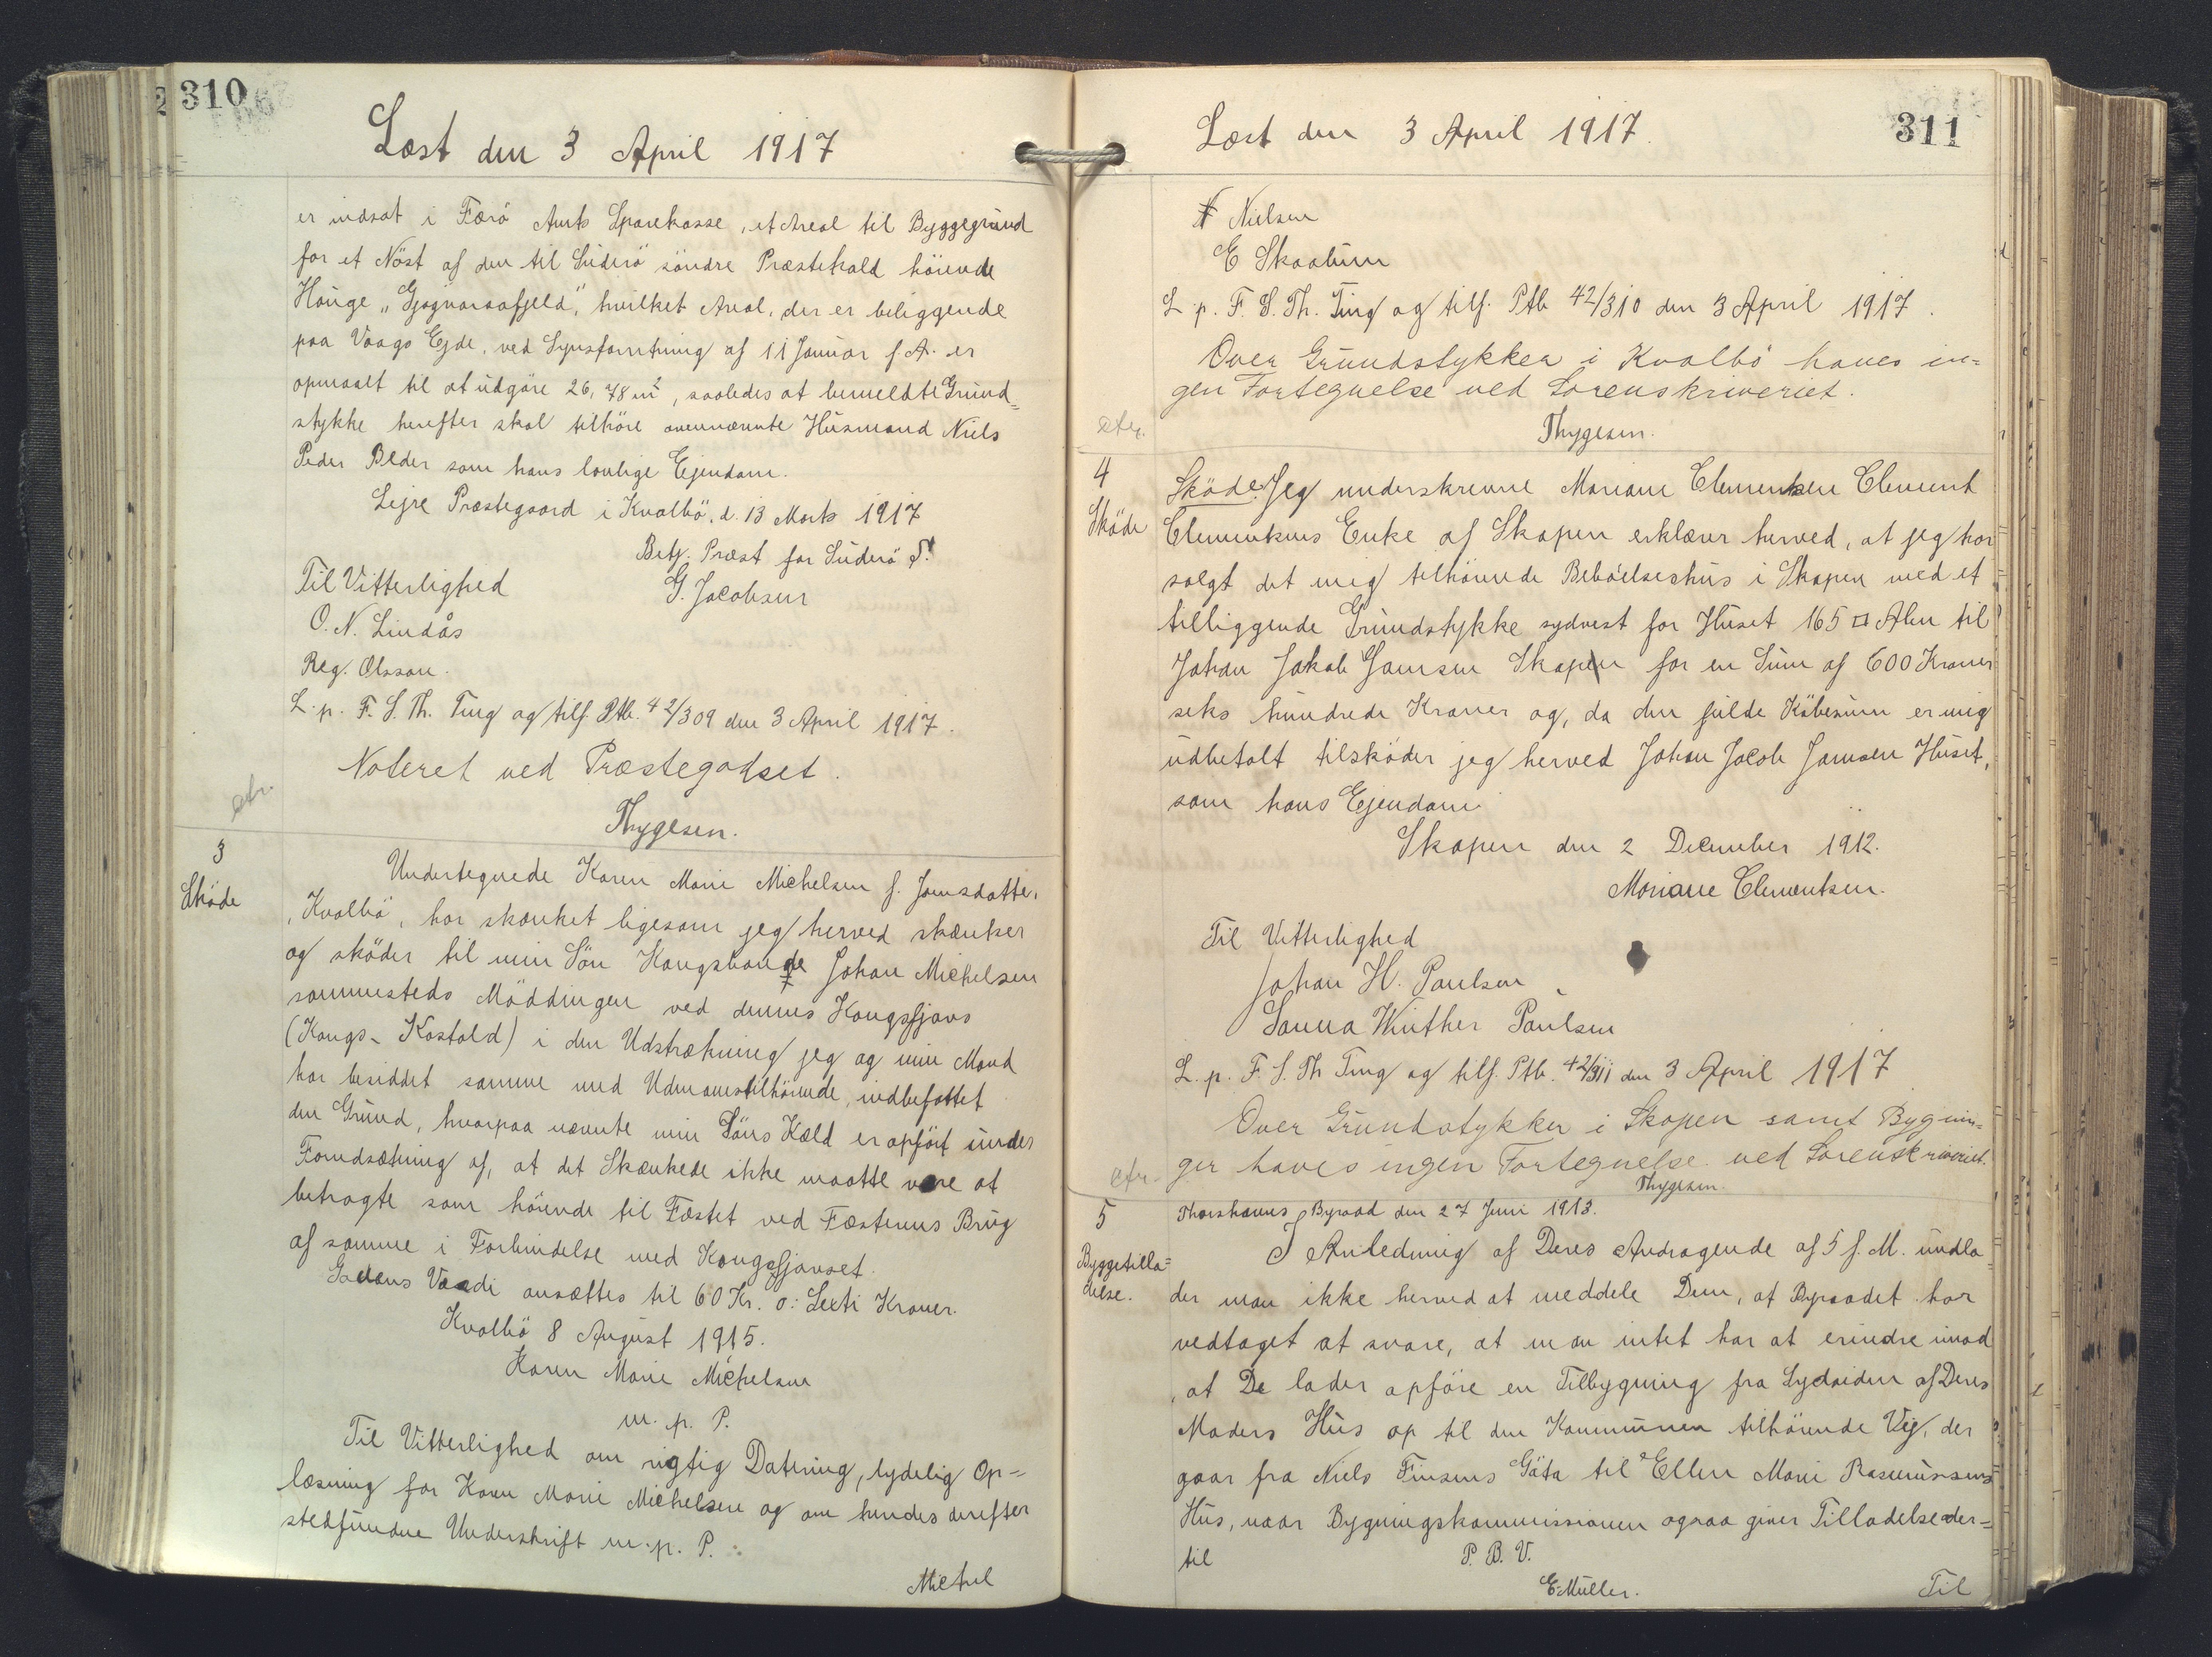 310
Læst den 3 April 1917
er indsat i Færö Amts Sparekasse, et Areal til Byggegrund
for et Nöst af den til Suderö söndre Præstekald hörende
Hauge „Gjognaraafjeld", hvilket Areal, der er beliggende
paa Vaags Ejde, ved Synsforretning af 11 Januar f. A. er
opmaalt til at udgöre 26,78 m², saaledes at bemeldte Grund=
stykke herefter skal tilhöre ovennævnte Husmand Niels
Peder Bläder som hans lovlige Ejendom.
Lejre Præstegaard i Kvalbö, d. 13 Marts 1917
Bets. Præst for Suderö S.
Til Vitterlighed G. Jacobsen
O. N. Lindås
Reg. Olsson.
L. p. F. S. Th. Ting og tilf. Ptb. 42/309 den 3 April 1917.
Noteret ved Præstegodset.
ctr.
Thygesen.
3
Sköde
Undertegnede Karen Marie Michelsen f. Joensdatter,
Kvalbö, har skænket ligesom jeg herved skænker
og sköder til min Sön Kongsbonde Johan Michelsen
sammesteds Möddingen ved dennes Kongsfjøs
(Kongs-Kostald) i den Udstrækning jeg og min Mand
har besiddet samme med Udmarkstilhörende, indbefattet
den Grund, hvorpaa nævnte min Söns Kæld er opfört under
Forudsætning af, at det Skænkede ikke maatte være at
betragte som hörende til Fæstet ved Fæsterens Brug
af samme i Forbindelse med Kongsfjøset.
Gadens Værdi ansættes til 60 Kr. o: Sexti Kroner.
Kvalbö 8 August 1915.
Karen Marie Michelsen
m. p. P.
Til Vitterlighed om rigtig Datering, tydelig Op=
læsning for Karen Marie Michelsen og om hendes derefter
stedfundne Underskrift m. p. P. :
Michel
311
Læst den 3 April 1917.
N Nielsen
E Skaalum
L. p. F. S. Th. Ting og tilf. Ptb 42/310 den 3 April 1917.
Over Grundstykker i Kvalbö haves in=
gen Fortegnelse ved Sorenskriveriet.
ctr.
Thygesen.
4
Sköde
Sköde. Jeg underskrevne Mariane Clementsen Clement
Clementsens Enke af Skapen erklærer herved, at jeg har
solgt det mig tilhörende Beböelseshus i Skapen med et
tilliggende Grundstykke sydvest for Huset 165 □ Alen til
Johan Jakob Joensen Skapen for en Sum af 600 Kroner
seks hundrede Kroner og, da den fulde Köbesum er mig
udbetalt tilsköder jeg herved Johan Jacob Joensen Huset,
som hans Ejendom.
Skapen den 2 December 1912.
Mariane Clementsen.
Til Vitterlighed
Johan H. Poulsen
Sanna Winther Poulsen
L. p. F. S. Th Ting og tilf. Ptb. 42/311 den 3 April 1917
Over Grundstykker i Skapen samt Bygnin=
ger haves ingen Fortegnelse ved Sorenskriveriet.
ctr.
Thygesen.
5
Byggetilla=
delse.
Thorshavns Byraad den 27 Juni 1913.
I Anledning af Deres Andragende af 5 f. M. undla=
der man ikke herved at meddele Dem, at Byraadet har
vedtaget at svare, at man intet har at erindre imod
, at De lader opföre en Tilbygning fra Sydsiden af Deres
Moders Hus op til den Kommunen tilhörende Vej, der
gaar fra Niels Finsens Göta til Ellen Marie Rasmussens
Hus, naar Bygningskommissionen ogsaa giver Tilladelse der=
til
P. B. V.
E. Müller.
Til